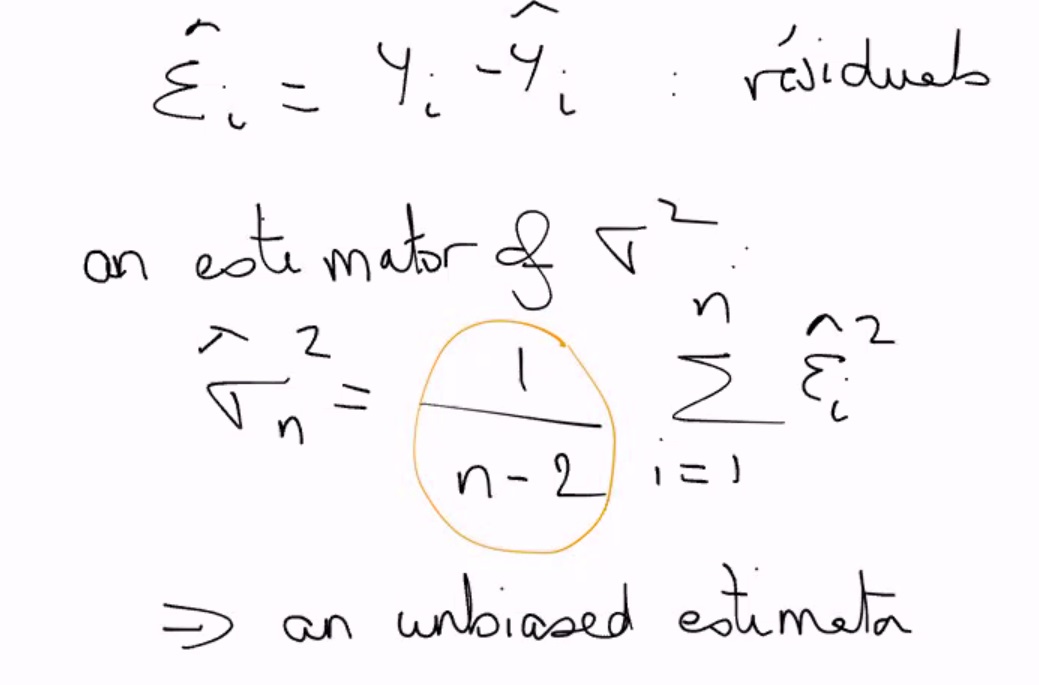 ε̂ᵢ = Yᵢ - Ŷᵢ : résiduals
an estimator of σ² :
σ̂ₙ² = 1/(n-2) ∑ᵢ₌₁ⁿ ε̂ᵢ²
⇒ an unbiased estimator